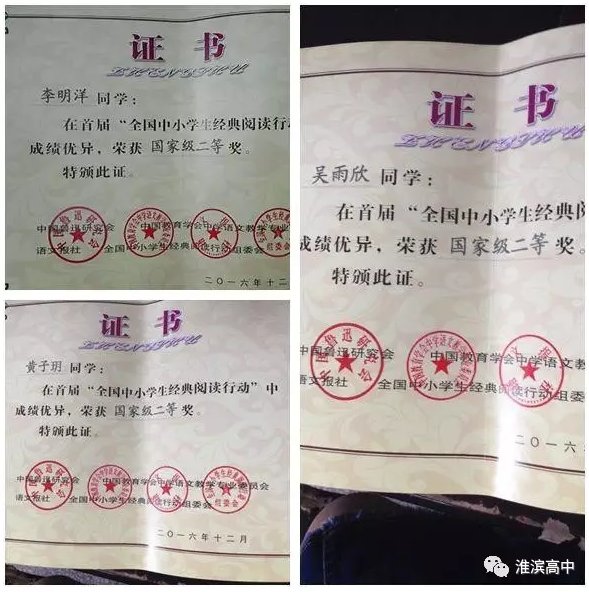 证书
ZHENGSHU
李明洋 同学：
在首届“全国中小学生经典阅读行动
成绩优异，荣获 国家级二等 奖。
特颁此证。
中国鲁迅研究会 中国教育学会中学语文教学专业
语文报社 全国中小学生经典阅读行动组委会
二〇一六年十二
证书
ZHENGSHU
黄子玥 同学：
在首届“全国中小学生经典阅读行动”中
成绩优异，荣获 国家级二等 奖。
特颁此证。
中国鲁迅研究会 中国教育学会中学语文教学专业委员会
语文报社 全国中小学生经典阅读行动组委会
二〇一六年十二月
证书
ZHENGSHU
吴雨欣 同学：
在首届“全国中小学生经典阅
成绩优异，荣获 国家级二等 奖。
特颁此证。
中国鲁迅研究会 中国教育学会中学语文教
语文报社 全国中小学生经典阅读行动组委会
二〇一六
淮滨高中